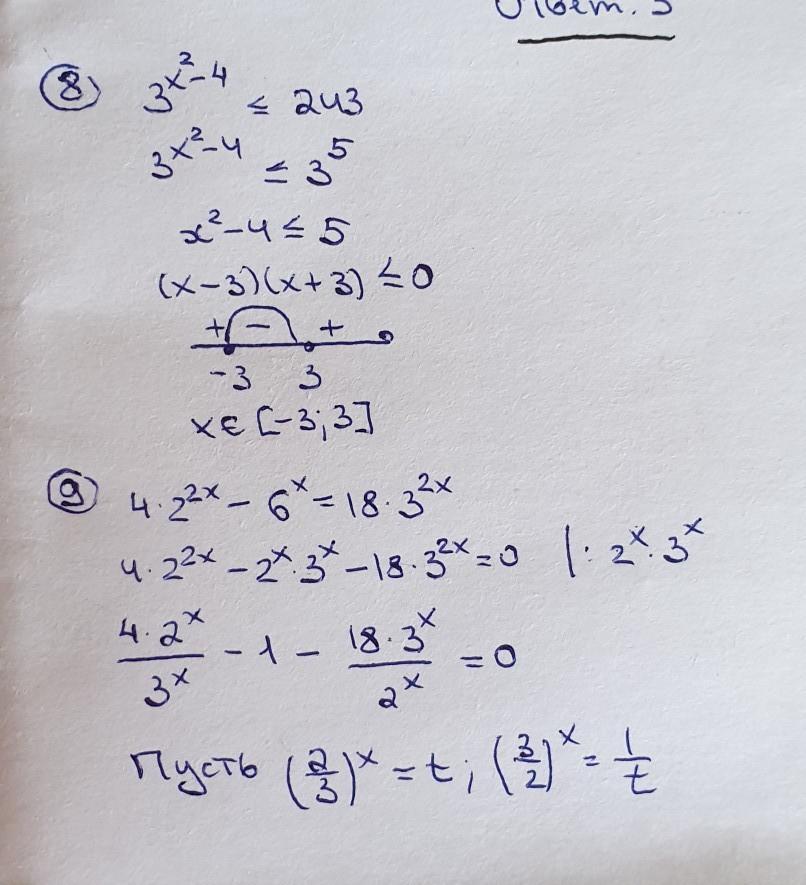 Ответ. 3
8) 3^{x^2-4} ≤ 243
3^{x^2-4} ≤ 3^5
x^2-4 ≤ 5
(x-3)(x+3) ≤ 0
+ - +
-3 3
x ∈ [-3;3]
9) 4·2^{2x} - 6^x = 18·3^{2x}
4·2^{2x} - 2^x·3^x - 18·3^{2x} = 0 |: 2^x·3^x
\frac{4·2^x}{3^x} - 1 - \frac{18·3^x}{2^x} = 0
Пусть (\frac{2}{3})^x = t; (\frac{3}{2})^x = \frac{1}{t}